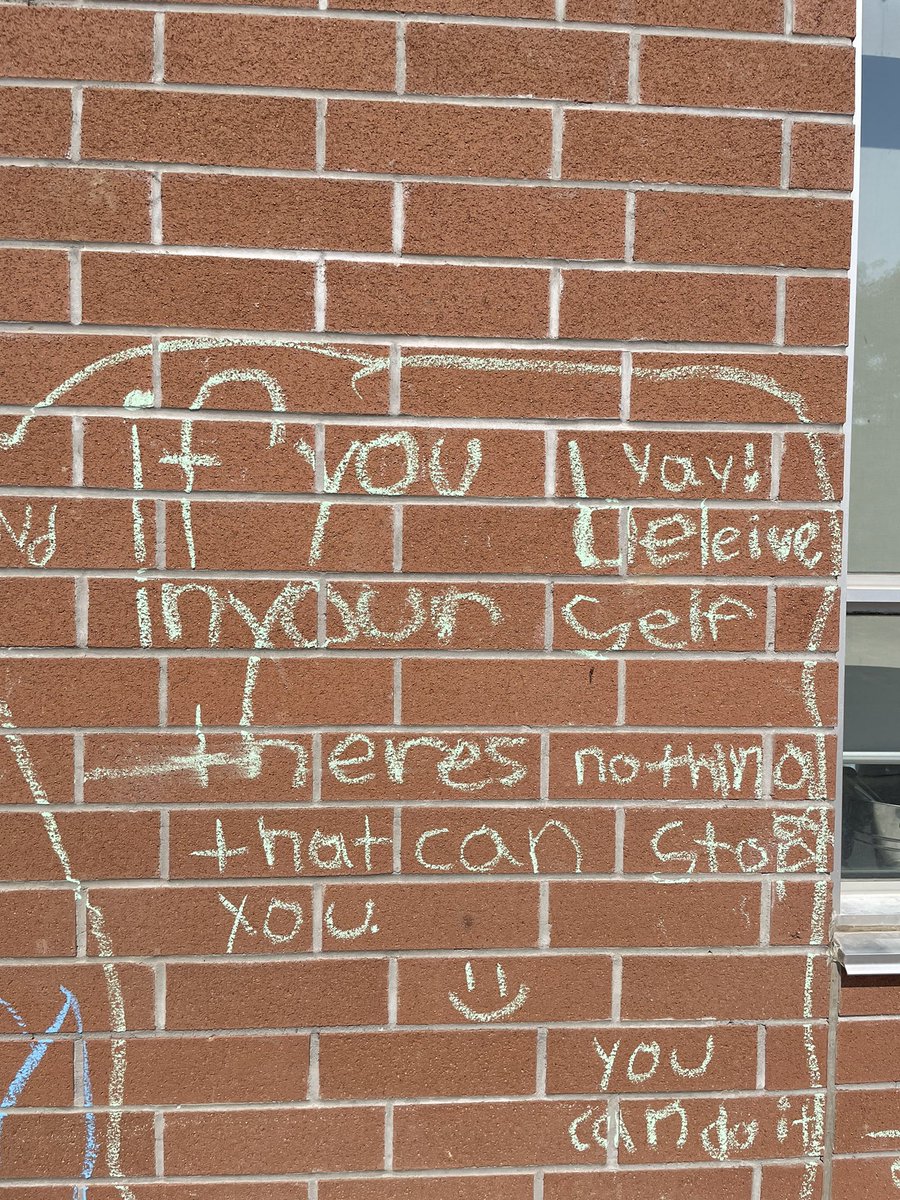 If you yay!
beleive
in your self
theres nothing
that can stop
you.
you
can do it